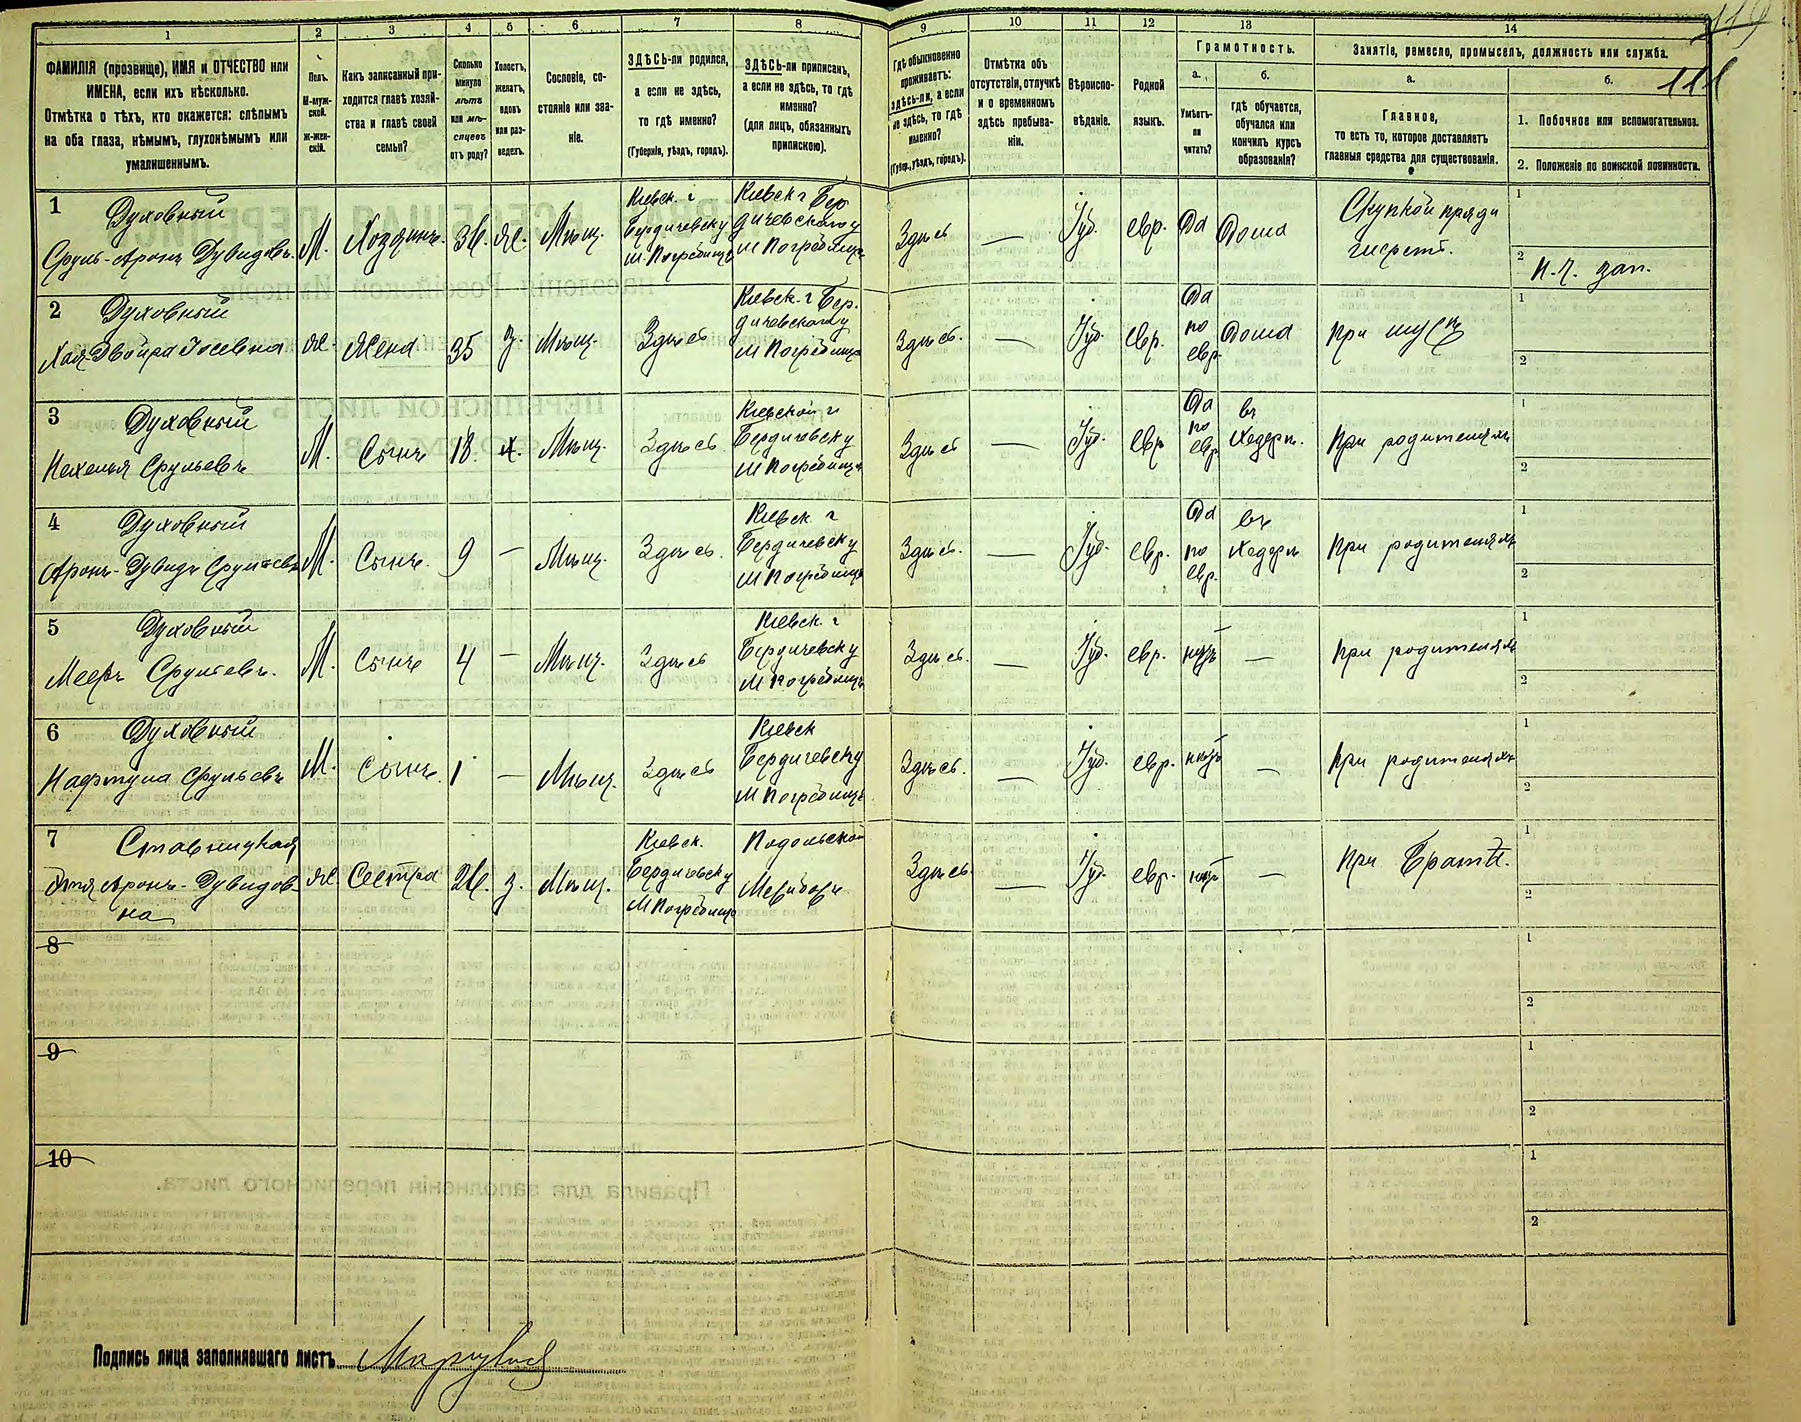 119
111
1
2
3
4
5
6
7
8
9
10
11
12
13
14
ФАМИЛІЯ (прозвище), ИМЯ и ОТЧЕСТВО или
ИМЕНА, если ихъ нѣсколько.
Отмѣтка о тѣхъ, кто окажется: слѣпымъ
на оба глаза, нѣмымъ, глухонѣмымъ или
умалишеннымъ.
Полъ.
М-муж-
ской.
Ж-жен-
скій.
Какъ записанный при-
ходится главѣ хозяй-
ства и главѣ своей
семьи?
Сколько
минуло
лѣтъ
или мѣ-
сяцевъ
отъ роду?
Холостъ,
женатъ,
вдовъ
или раз-
веденъ.
Сословіе, со-
стояніе или зва-
ніе.
ЗДѢСЬ-ли родился,
а если не здѣсь,
то гдѣ именно?
(Губернія, уѣздъ, городъ).
ЗДѢСЬ-ли приписанъ,
а если не здѣсь, то гдѣ
именно?
(для лицъ, обязанныхъ
припискою).
Гдѣ обыкновенно
проживаетъ:
здѣсь-ли, а если
не здѣсь, то гдѣ
именно?
(Губер., уѣздъ, городъ).
Отмѣтка объ
отсутствіи, отлучкѣ
и о временномъ
здѣсь пребыва-
ніи.
Вѣроиспо-
вѣданіе.
Родной
языкъ.
Грамотность.
а.
б.
Умѣетъ-
ли
читать?
гдѣ обучается,
обучался или
кончилъ курсъ
образованія?
Занятіе, ремесло, промыселъ, должность или служба.
а.
б.
Главное,
то есть то, которое доставляетъ
главныя средства для существованія.
1. Побочное или вспомогательное.
2. Положеніе по воинской повинности.
1 Духовный
Сруль-Аронъ Дувидовъ.
М. Хозяинъ. 36. ж. Мѣщ.
Кіевск. г
Бердичевск у
м. Погребищъ
Кіевск г Бер
дичевского у
м Погребищъ
Здѣсь — Іуд. евр. Да Дома
1
2 Н. Ч. зап.
2 Духовный
Хая-Двойра Іосевна
ж. Жена 35 з. Мѣщ. Здѣсь
Кіевск. г Бер.
дичевского у
м Погребищъ
Здѣсь. — Іуд. евр.
Да
по
евр.
Дома При муж
1
2
3 Духовный
Нехемья Срульевъ
М. Сынъ 18. х. Мѣщ. Здѣсь
Кіевской г
Бердичевск у
м Погребищъ
Здѣсь — Іуд. евр
Да
по
евр
въ
хедеръ.
При родителяхъ
1
2
4 Духовный
Аронъ-Дувидъ Срульевъ
М. Сынъ. 9 — Мѣщ. Здѣсь.
Кіевск г
Бердичевск у
м Погребищъ
Здѣсь. — Іуд. евр.
Да
по
евр.
въ
хедеръ
При родителяхъ
1
2
5 Духовный
Мееръ Срульевъ.
М. Сынъ 4 — Мѣщ. Здѣсь
Кіевск г
Бердичевск у
м Погребищъ
Здѣсь. — Іуд. евр. нѣтъ — При родителяхъ
1
2
6 Духовный
Нафтула Срульевъ
М. Сынъ. 1 — Мѣщ. Здѣсь
Кіевск
Бердичевск у
м Погребищъ
Здѣсь. — Іуд. евр. нѣтъ — При родителяхъ
1
2
7 Ставницкая
Аронъ-Дувидов
на
ж Сестра 26. з. Мѣщ.
Кіевск.
Бердичевск у
м Погребищъ
Подольской
Здѣсь — Іуд. евр. нѣтъ — При Братѣ.
1
2
8
1
2
9
1
2
10
1
2
Подпись лица заполнявшаго листъ